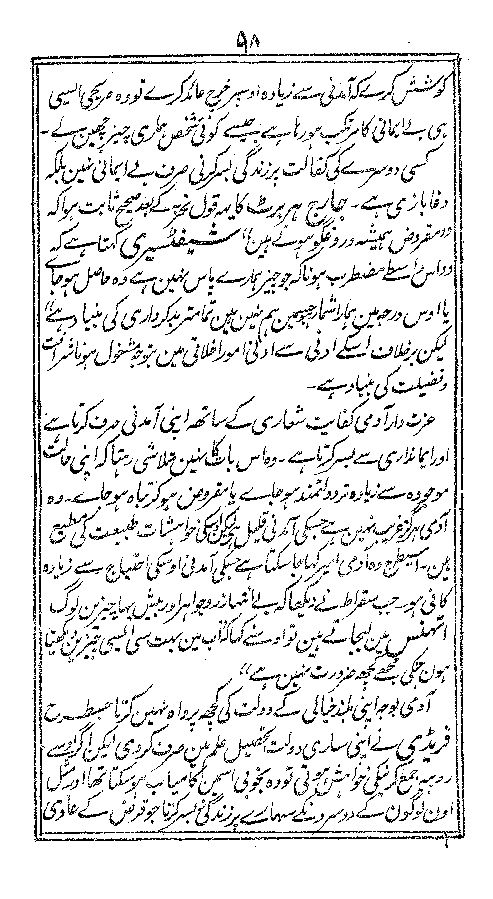 ۵۸
کوشش کرے کہ آمدنی سے زیادہ اوسپر خرچ عائد کرے تو وہ صریحی ایسی
ہی بے ایمانی کا مرتکب ہو رہا ہے جیسے کوئی شخص ہماری چیز چھین لے ۔
کسی دوسرے کی کفالت پر زندگی بسر کرنی صرف بے ایمانی نہین بلکہ
دغابازی ہے ۔ جارج ہربرٹ کا یہ قول تجربہ کے بعد صحیح ثابت ہوا کہ
دو مقروض ہمیشہ دروغگو ہوتے ہین" شیفٹسبری کہتا ہے کہ
دو اس واسطے مضطرب ہونا کہ جو چیز ہمارے پاس نہین ہے وہ حاصل ہو جاے
یا اوس درجہ مین ہمارا شمار جسمین ہم نہین ہین تمامتر بدکرداری کی بنیاد ہے"
لیکن برخلاف اسکے ادنی سے ادنی امور اخلاقی مین بتوجہ مشغول ہونا شرافت
و فضیلت کی بنیاد ہے ۔
عزت دار آدمی کفایت شعاری کے ساتھ اپنی آمدنی صرف کرتا ہے
اور ایمانداری سے بسر کرتا ہے ۔ وہ اس بات کا نہین متلاشی رہتا کہ اپنی حالت
موجودہ سے زیادہ تر دولتمند ہو جاے یا مقروض ہو کر تباہ ہو جاے ۔ وہ
آدمی ہرگز غریب نہین ہے جسکی آمدنی قلیل ہے لیکن اسکی خواہشات طبیعت کی مطیع
ہین ۔ اسیطرح وہ آدمی امیر کہا جا سکتا ہے جسکی آمدنی اوسکی احتیاج سے زیادہ
کافی ہو ۔ جب سقراط نے دیکھا کہ بے انتہا زر و جواہر اور بیش بہا چیزین لوگ
اتھنس مین لیجاتے ہین تو اوسنے کہا کہ اب مین بہت سی ایسی چیزین دیکھتا
ہون جنکی مجھے کچھ ضرورت نہین ہے"
آدمی بوجہ اپنی بلند خیالی کے دولت کی کچھ پرواہ نہین کرتا جسطرح
فریڈی نے اپنی ساری دولت تحصیل علم مین صرف کر دی لیکن اگر اوسے
روپیہ جمع کرنیکی خواہش ہوتی تو وہ بخوبی اسمین کامیاب ہو سکتا تھا اور مثل
اون لوگون کے دوسرونکے سہارے پر زندگی بسر کرنا جو قرض کے عادی